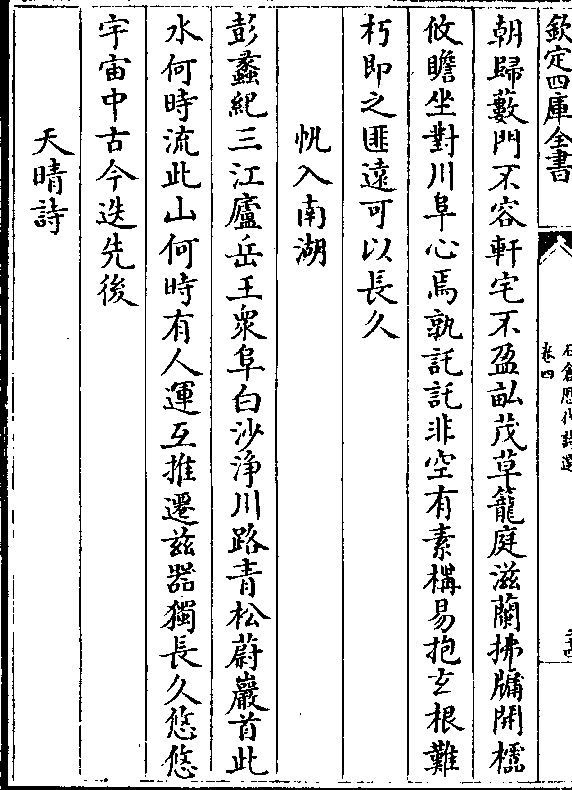 欽定四庫全書
石倉歴代詩選
卷四
朝歸藪門不容軒宅不盈畆茂草籠庭滋蘭拂牖開櫺
攸瞻坐對川阜心焉孰託託非空有素構易抱玄根難
朽即之匪遠可以長久
帆入南湖
彭蠡紀三江廬岳主衆阜白沙浄川路青松蔚巖首此
水何時流此山何時有人運互推遷兹器獨長久悠悠
宇宙中古今迭先後
天晴詩